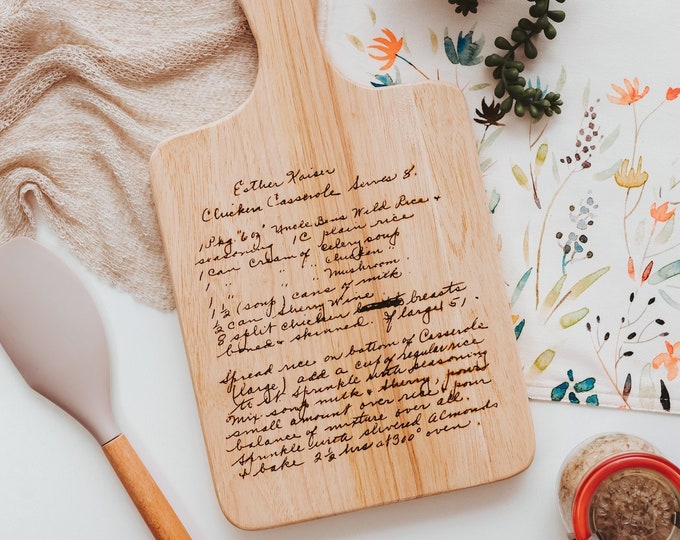 Esther Kaiser
Chicken Casserole Serves 8.
1 Pkg "6 oz" Uncle Bens Wild Rice &
seasoning 1C plain rice
1 can cream of celery soup
1 " " " Chicken "
1 " " " Mushroom "
1 ½ (soup) cans of milk
½ can Sherry Wine
8 split chicken breasts
boned & skinned. If large 5.
Spread rice on bottom of Casserole
(large) add a cup of regular rice
to it. Sprinkle with seasoning
Mix soup milk & sherry, pour
small amount over rice & pour
balance of mixture over all.
Sprinkle with slivered Almonds
& bake 2 ½ hrs at 300° oven.